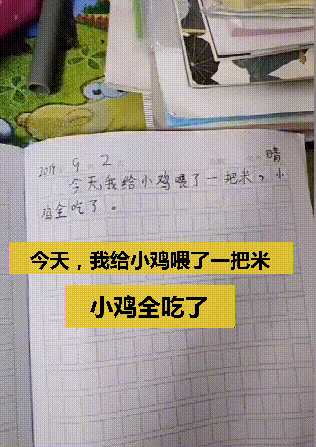 2019 9 2 晴
今天,我给小鸡喂了一把米,小
鸡全吃了。
今天，我给小鸡喂了一把米
小鸡全吃了